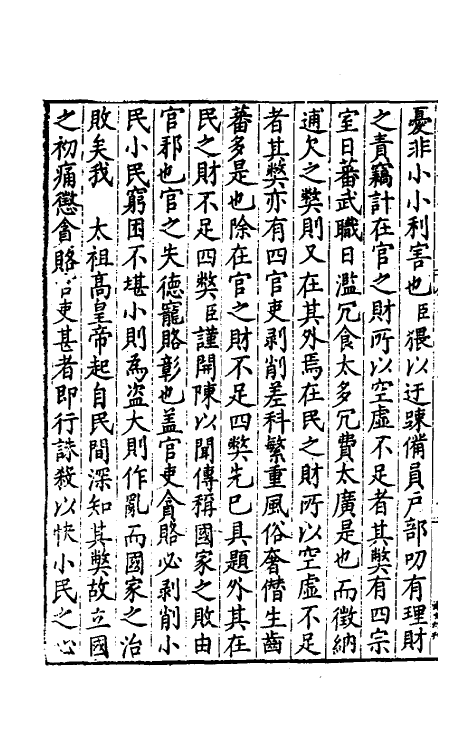 憂非小小利害也臣猥以迂踈備員戶部叨有理財
之責竊計在官之財所以空虛不足者其獘有四宗
室日蕃武職日濫冗食太多冗費太廣是也而徵納
逋欠之獘則又在其外焉在民之財所以空虛不足
者其獘亦有四官吏剥削差科繁重風俗奢僣生齒
蕃多是也除在官之財不足四獘先已具題外其在
民之財不足四獘臣謹開陳以聞傳稱國家之敗由
官邪也官之失德寵賂彰也盖官吏貪賂必剥削小
民小民窮困不堪小則為盗大則作亂而國家之治
敗矣我　太祖高皇帝起自民間深知其獘故立國
之初痛懲貪賂官吏甚者即行誅殺以快小民之心